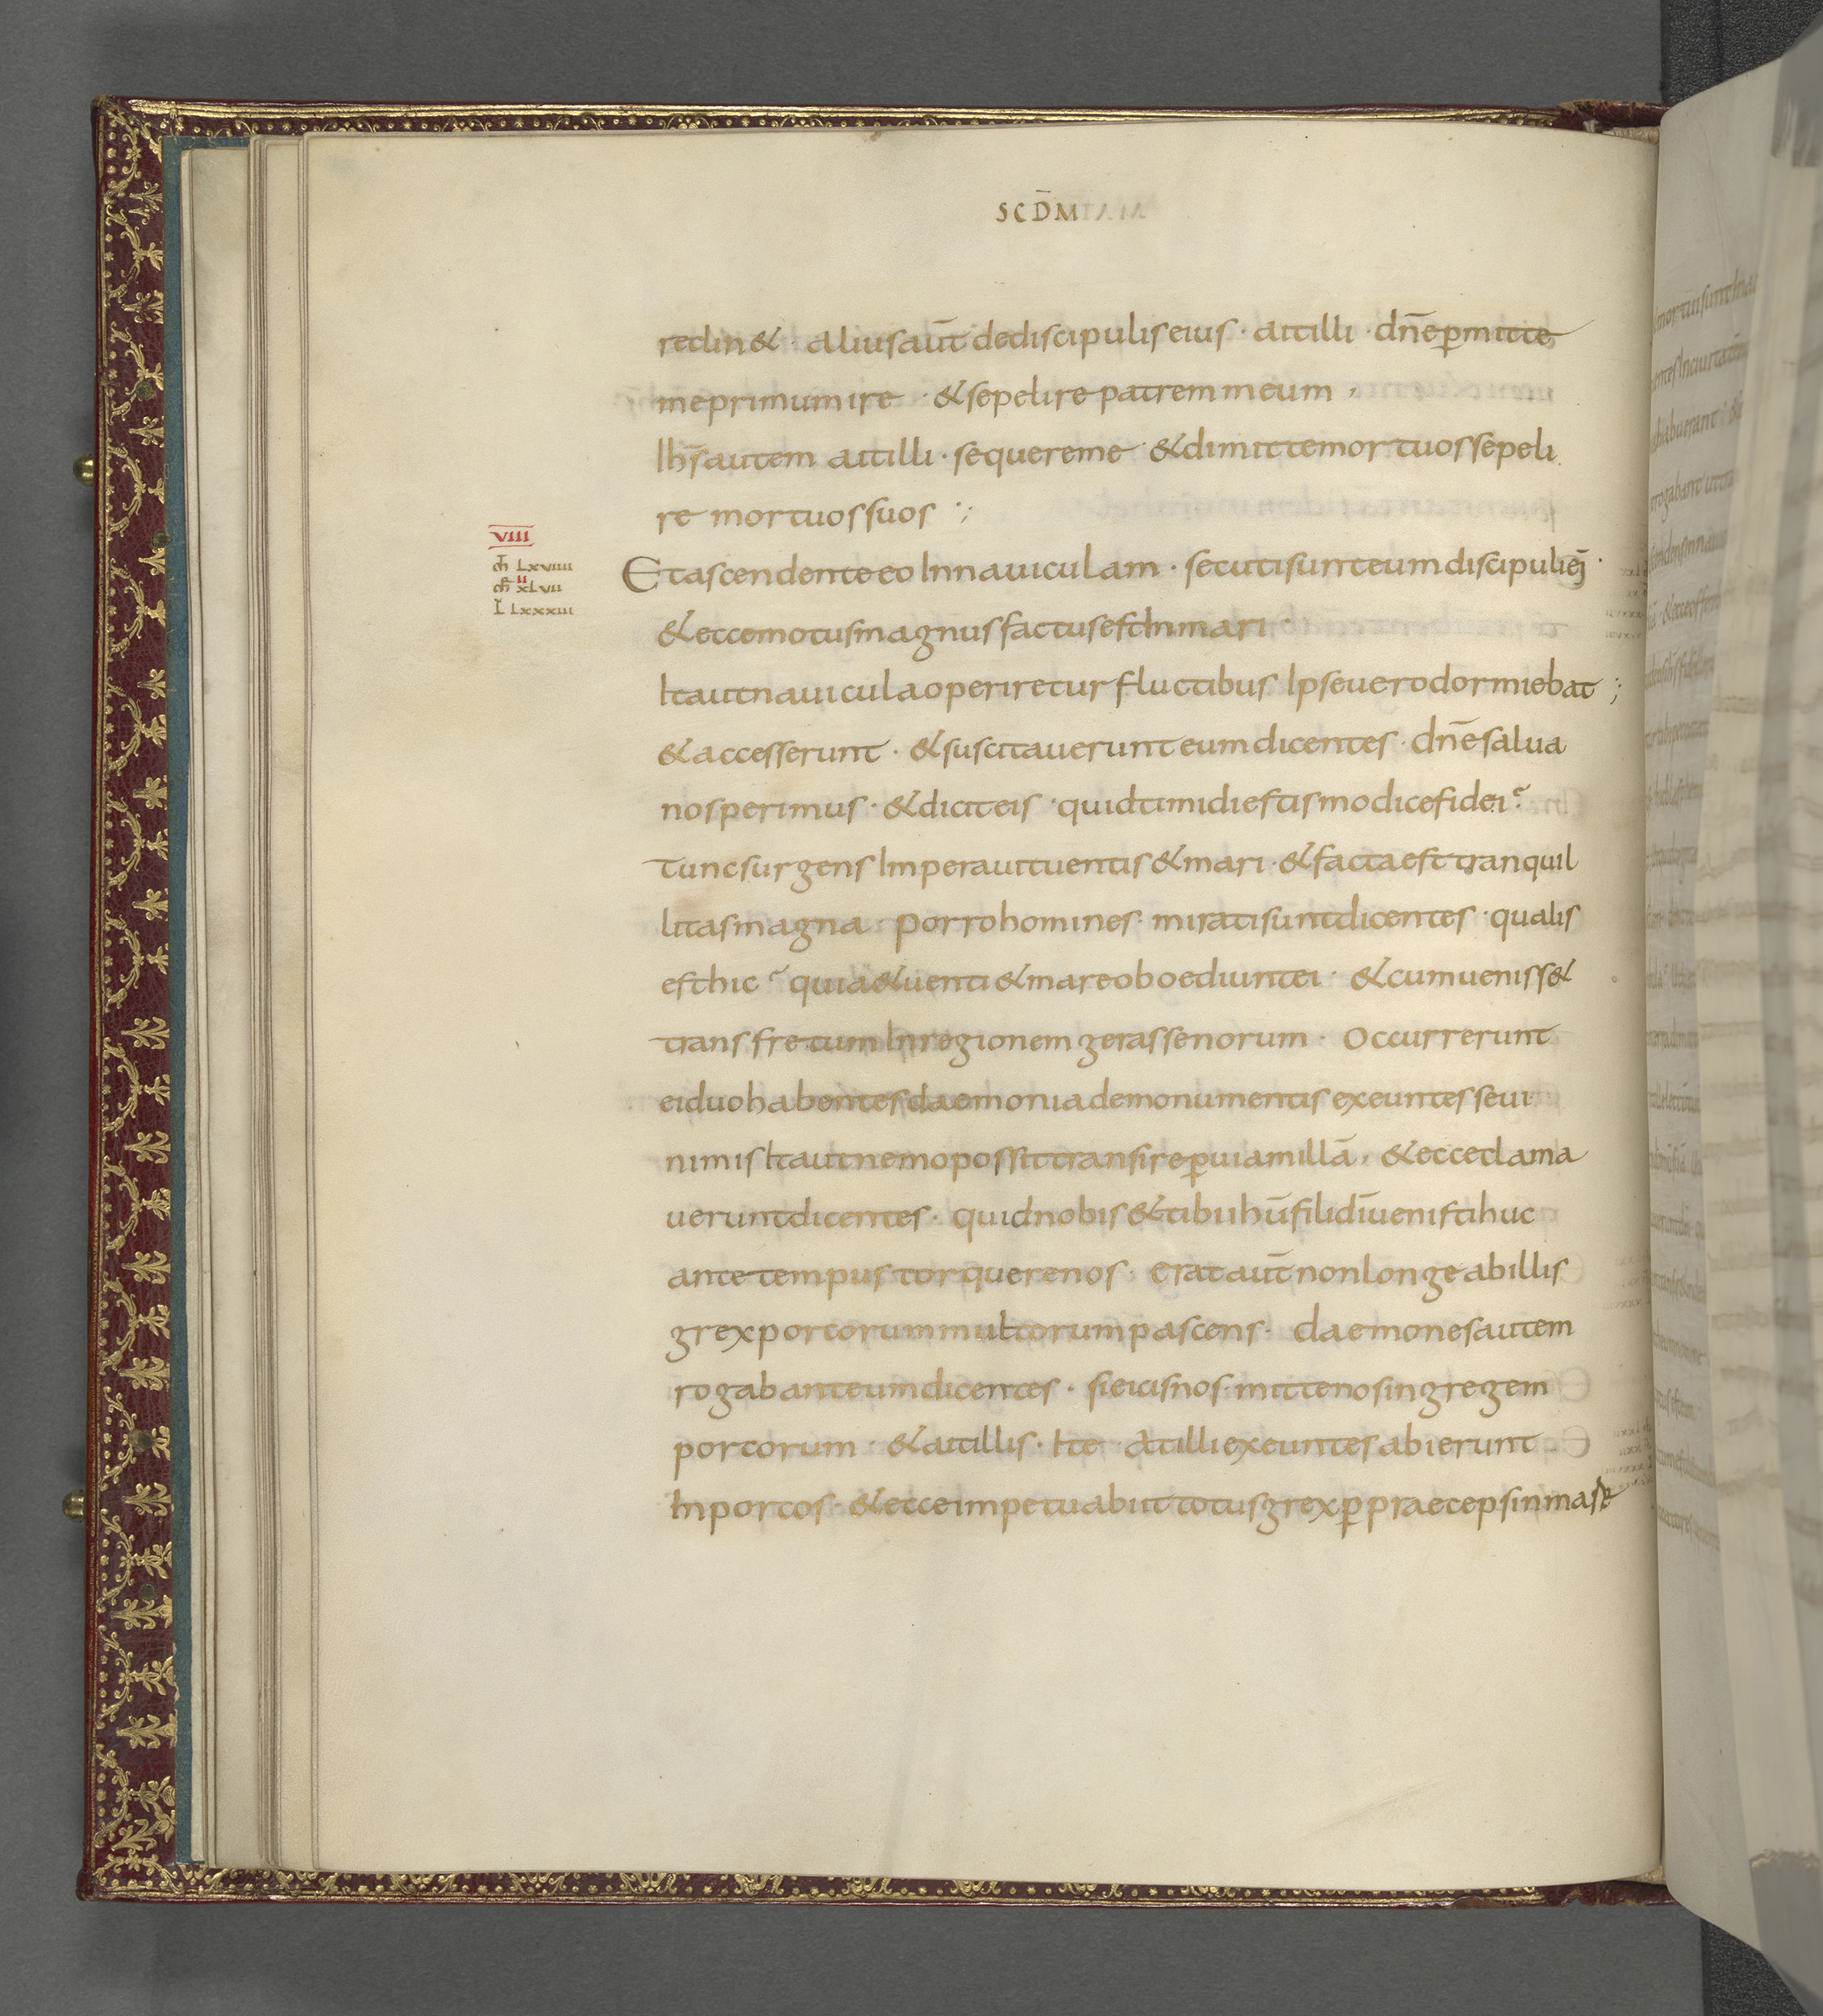 SCD̄M
reclin& · aliusaūt dediscipuliseius · aitilli · dn̄epmitte
meprimumire · &sepelirepatremmeum ,
Ihs̄autem aitilli · sequereme &dimittemortuossepeli
re mortuossuos :,
VIII
m̄ Lxviiii
II
m̄r xLvii
L Lxxxiii
Etascendenteeo Innauiculam · secutisunteumdiscipuliej ·
&eccemotusmagnusfactusestInmari ·
Itautnauiculaoperireturfluctibus Ipseuerodormiebat ;
&accesserunt · &suscitauerunteumdicentes · dn̄esalua
nosperimus · &diciteis · quidtimidiestismodicefidei?
Tuncsurgens Imperauituentis&mari · &factaesttranquil
litasmagna · porrohomines · miratisuntdicentes · qualis
esthic? quia&uenti&mareoboediuntei · &cumueniss&
transfretumInregionemgerassenorum · Occurrerunt
eiduohabentesdaemoniademonumentisexeuntesseui
nimisItautnemopossittransirepuiamillā , &ecceclama
ueruntdicentes · quidnobis&tibiihū filidīuenistihuc
antetempustorquerenos · erataūtnonlongeabillis
grexporcorummultorumpascens · daemonesautem
rogabanteumdicentes · sieicisnos · mittenosingregem
porcorum · &aitillis · Ite · Atilliexeuntesabierunt
Inporcos · &ecceimpetuabiittotusgrexppraecepsinmare